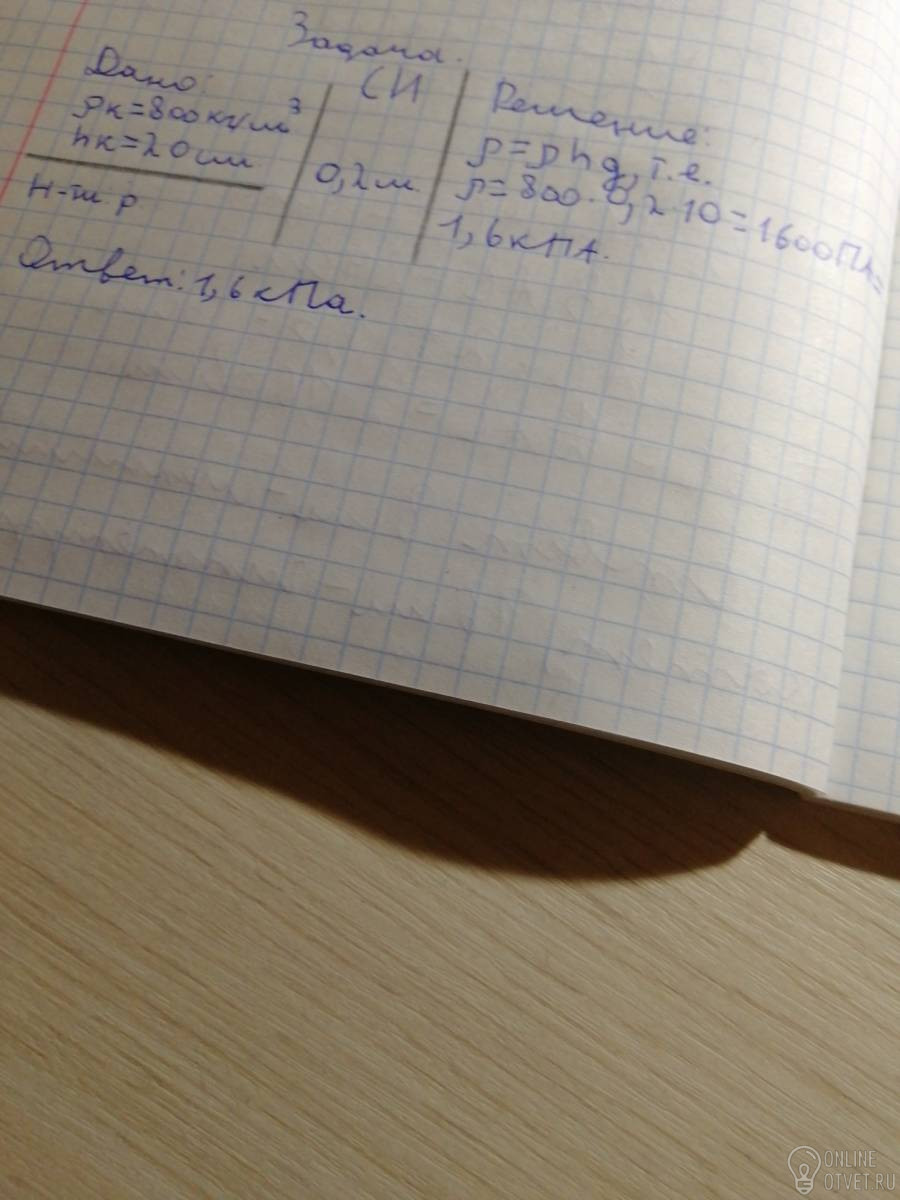 Задача.
Дано:
ρк=800кг/м³
hк=20см
Н-ти р
СИ
0,2м.
Решение:
р=ρhg, т.е.
р=800·0,2·10=1600ПА=
1,6кПА.
Ответ: 1,6кПа.
ONLINE
OTVET.RU